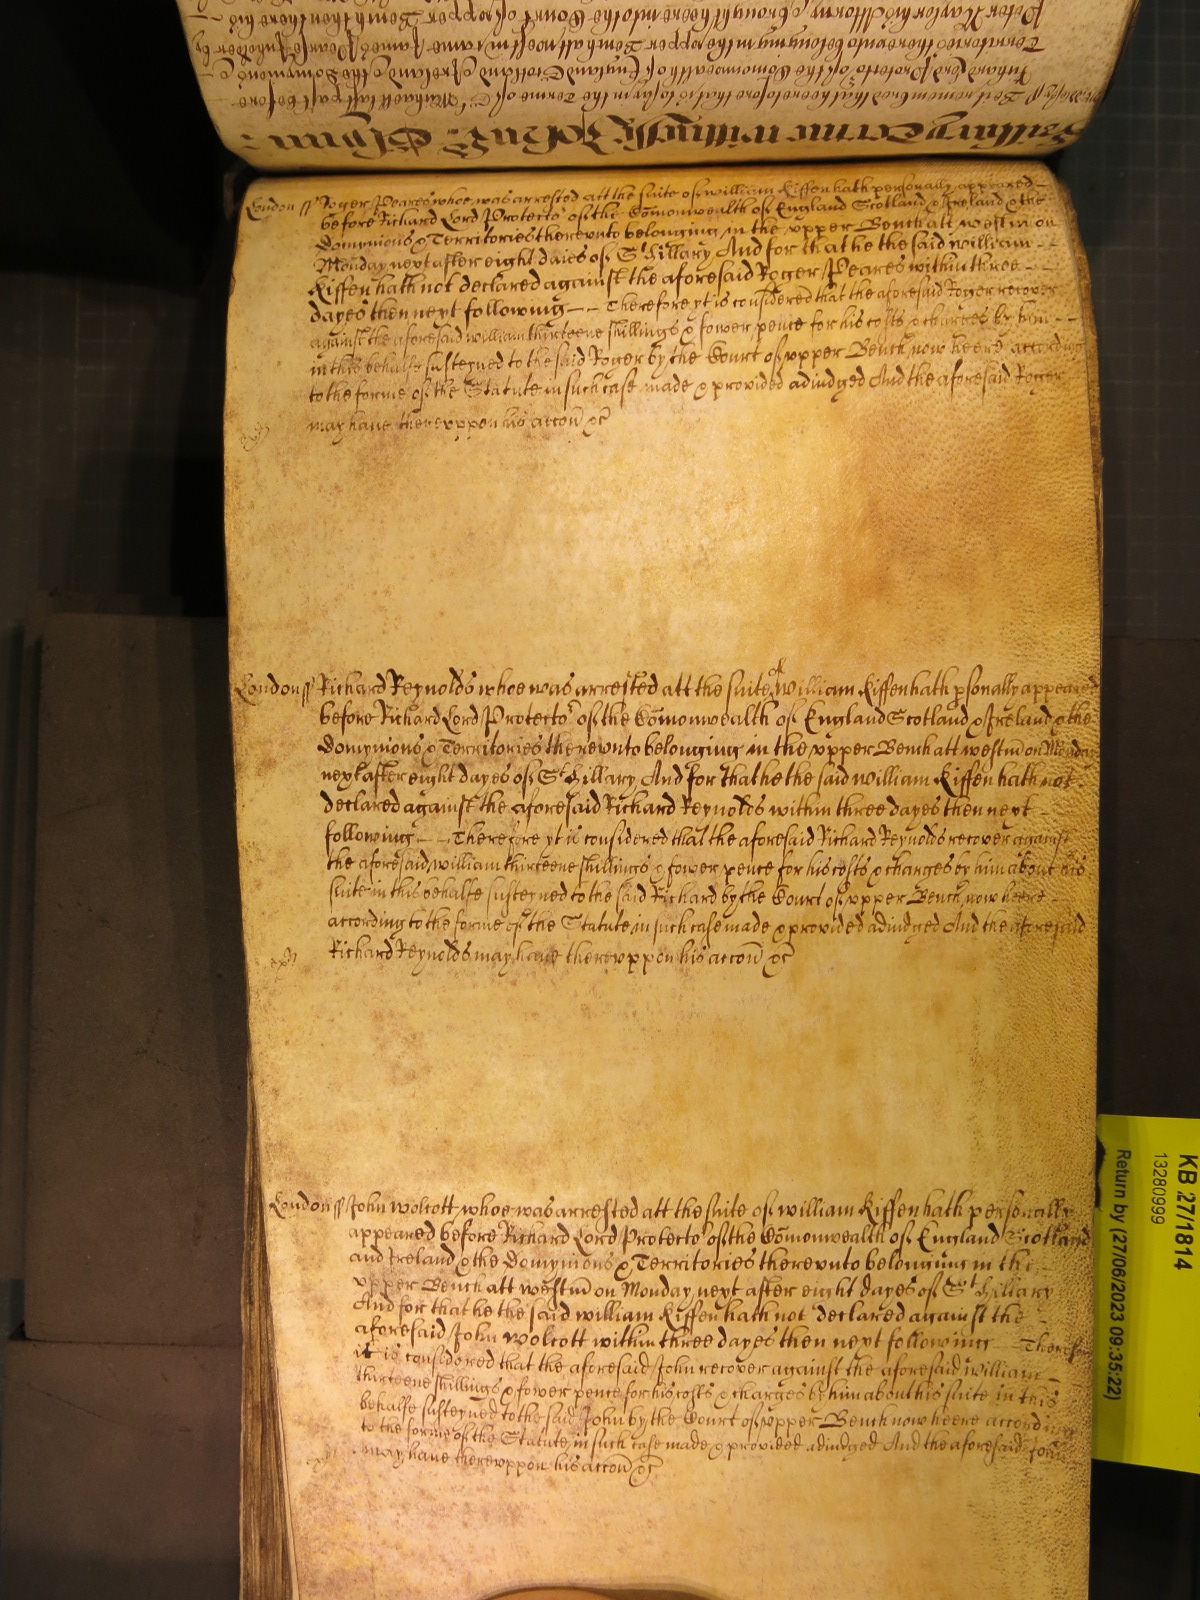 London ss Roger Peares whoe was arrested att the suite of william Kiffen hath personally appeared
before Richard Lord Protector of the Comonwealth of England Scotland & Ireland & the
Dominions & Territories therevnto belonging in the vpper Bench att westm on
Monday next after eight daies of St hillary And for that he the said william
Kiffen hath not declared against the aforesaid Roger Peares within three
dayes then next following Therefore yt is considered that the aforesaid Roger recover
against the aforesaid william thirteene shillings & fower pence for his costs & charges by him
in this behalfe susteyned to the said Roger by the Court of vpper Bench now heere according
to the forme of the Statute in such case made & provided adiudged And the aforesaid Roger
may have therevppon his accon &c
London ss Richard Reynolds whoe was arrested att the suite of william Kiffen hath psonally appeared
before Richard Lord Protector of the Comonwealth of England Scotland & Ireland & the
Domynions & Territories therevnto belonging in the vpper Bench att westm on Monday
next after eight dayes of St hillary And for that he the said william Kiffen hath not
declared against the aforesaid Richard Reynolds within three dayes then next
following Therefore yt is considered that the aforesaid Richard Reynolds recover against
the aforesaid william thirteene shillings & fower pence for his costs & charges by him about his
suite in this behalfe susteyned to the said Richard by the Court of vpper Bench now heere
according to the forme of the Statute in such case made & provided adiudged And the aforesaid
Richard Reynolds may have therevppon his accon &c
London ss John wolcott whoe was arrested att the suite of william Kiffen hath personally
appeared before Richard Lord Protector of the Comonwealth of England Scotland
and Ireland & the Domynions & Territories therevnto belonging in the
vpper Bench att westm on Monday next after eight dayes of St hillary
And for that he the said william Kiffen hath not declared against the
aforesaid John wolcott within three dayes then next following Therefore
it is considered that the aforesaid John recover against the aforesaid william
thirteene shillings & fower pence for his costs & charges by him about his suite in this
behalfe susteyned to the said John by the Court of vpper Bench now heere according
to the forme of the Statute in such case made & provided adiudged And the aforesaid John
may have therevppon his accon &c
KB 27/1814
13280999
Return by (27/06/2023 09:35:22)